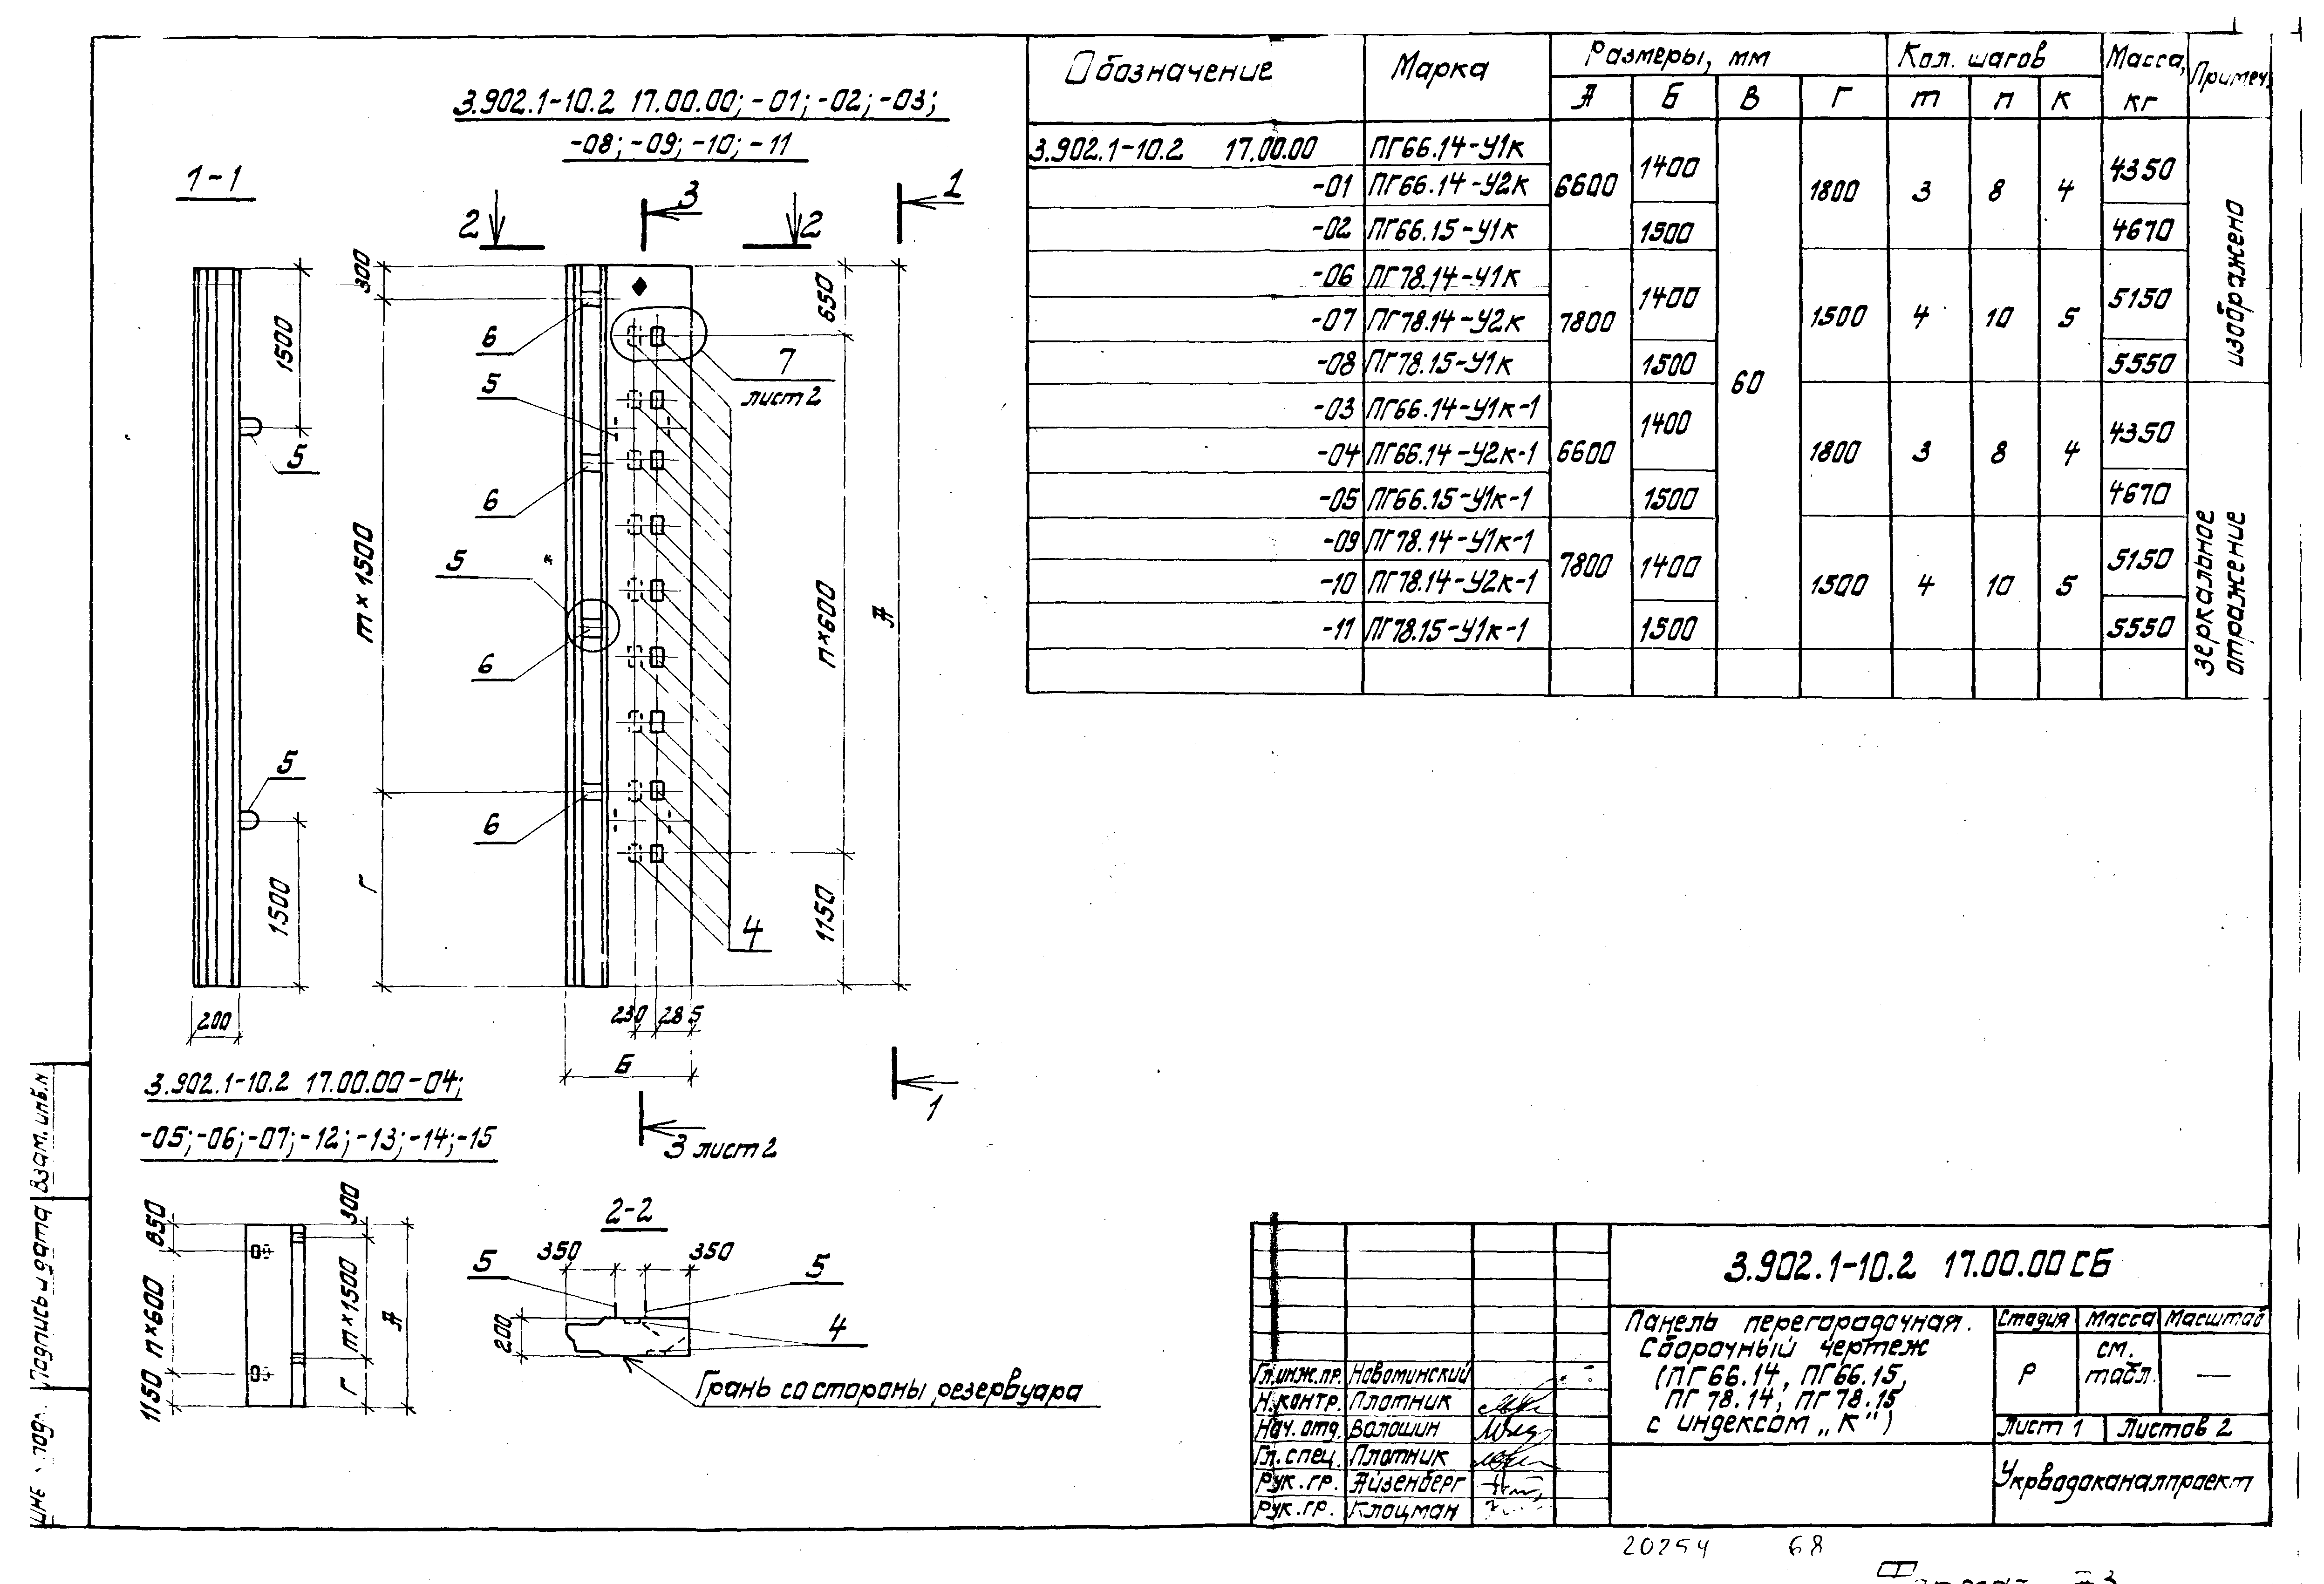 3.902.1-10.2 17.00.00; -01; -02; -03;
-08; -09; -10; -11
1-1
2
3
2
1
300
1500
650
6
5
7
лист 2
5
6
m×1500
5
6
n×600
А
5
6
Г
1500
1150
4
200
230
285
Б
1
3 лист 2
3.902.1-10.2 17.00.00-04;
-05; -06; -07; -12; -13; -14; -15
850
n×600
1150
300
m×1500
Г
А
2-2
5
350
350
5
200
4
Грань со стороны резервуара
Обозначение Марка Размеры, мм Кол. шагов Масса, кг Примеч.
А Б В Г m п к
3.902.1-10.2 17.00.00 ПГ66.14-У1к 6600 1400 60 1800 3 8 4 4350 изображено
-01 ПГ66.14-У2к
-02 ПГ66.15-У1к 1500 4670
-06 ПГ78.14-У1к 7800 1400 1500 4 10 5 5150
-07 ПГ78.14-У2к
-08 ПГ78.15-У1к 1500 5550
-03 ПГ66.14-У1к-1 6600 1400 1800 3 8 4 4350 зеркальное отражение
-04 ПГ66.14-У2к-1
-05 ПГ66.15-У1к-1 1500 4670
-09 ПГ78.14-У1к-1 7800 1400 1500 4 10 5 5150
-10 ПГ78.14-У2к-1
-11 ПГ78.15-У1к-1 1500 5550
3.902.1-10.2 17.00.00 СБ
Панель перегородочная.
Сборочный чертеж
(ПГ66.14, ПГ66.15,
ПГ78.14, ПГ78.15
с индексом „к")
Стадия Масса Масштаб
Р см. табл. —
Лист 1 Листов 2
Укрводоканалпроект
Гл.инж.пр. Новоминский
Н.контр. Плотник
Нач.отд. Волошин
Гл.спец. Плотник
Рук.гр. Айзенберг
Рук.гр. Клоцман
Взам.инв.N
Подпись и дата
20254 68